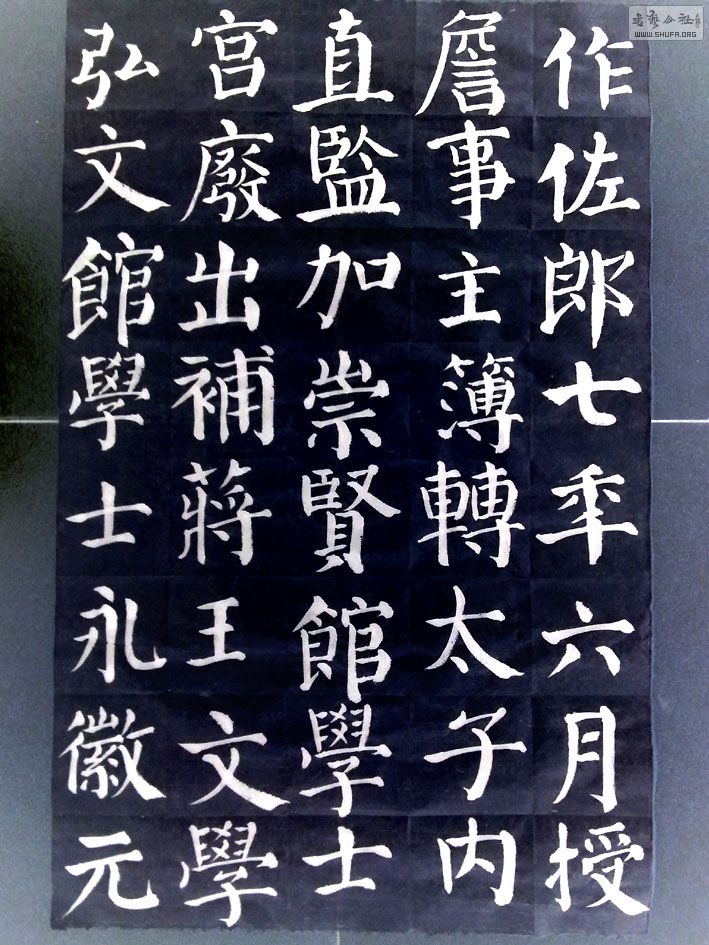 作佐郎七年六月授
詹事主簿轉太子内
直監加崇賢館學士
宮廢出補蔣王文學
弘文館學士永徽元
書藝公社
WWW.SHUFA.ORG